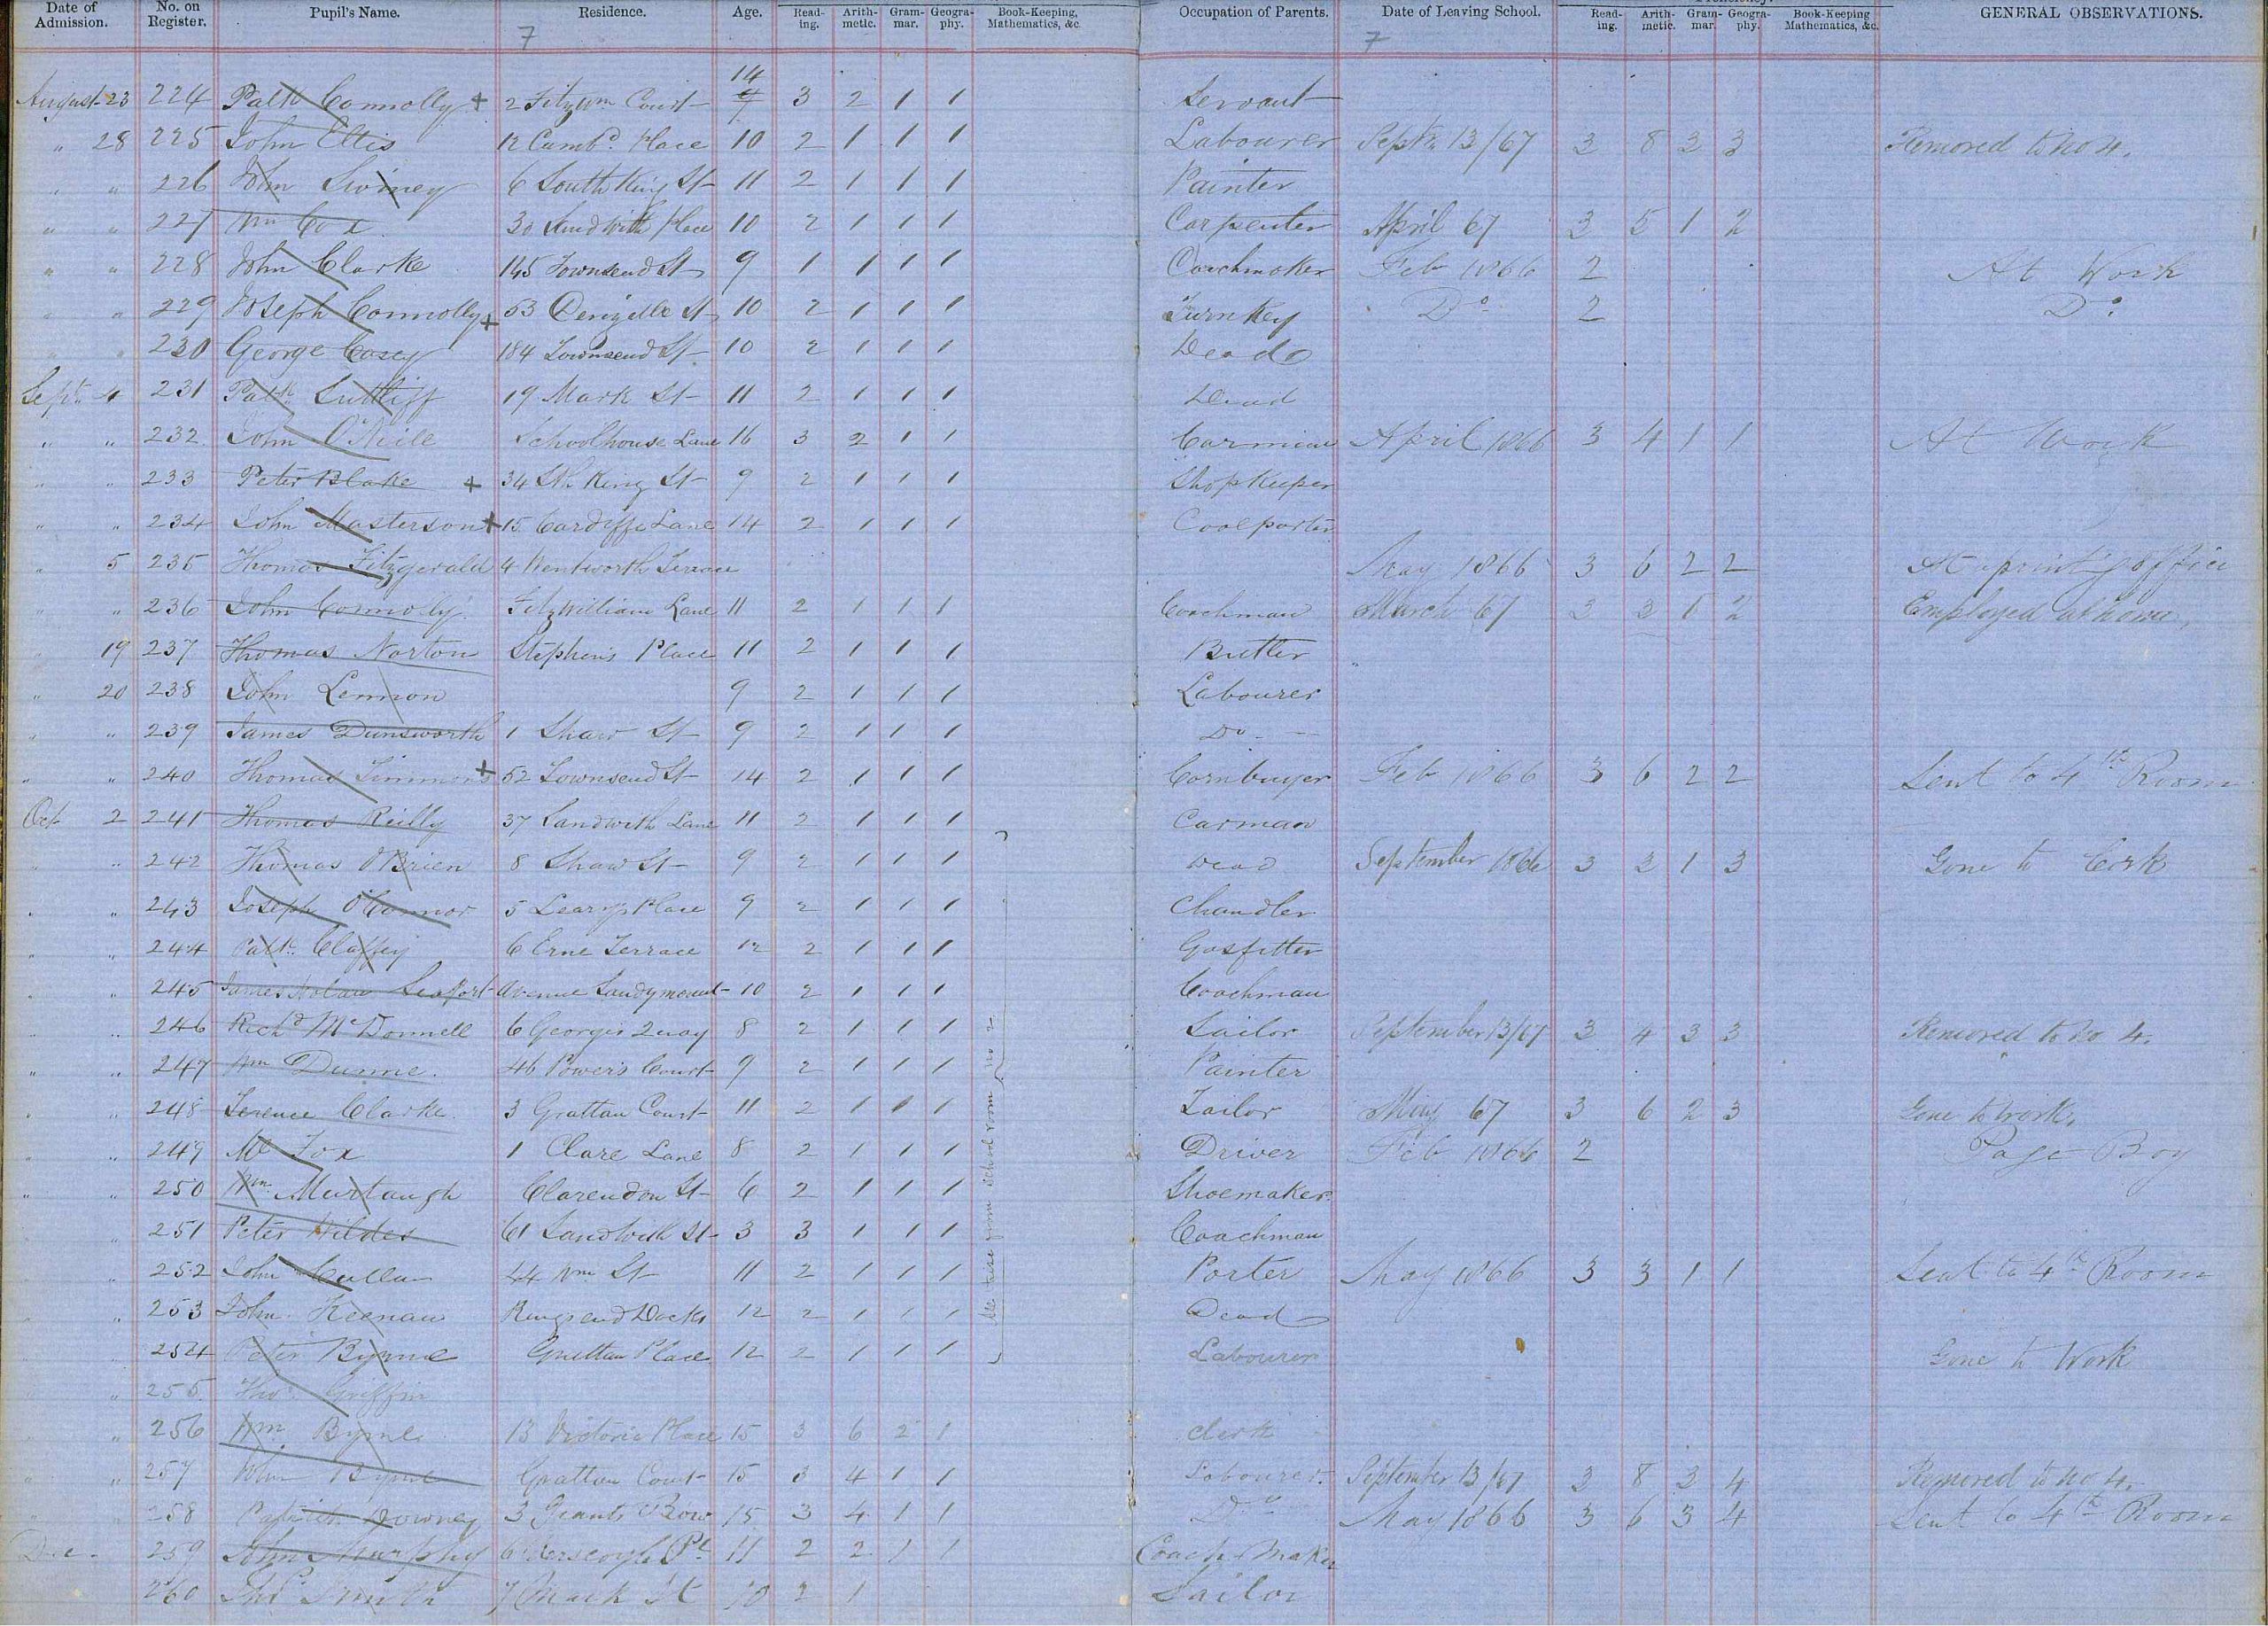 Date of Admission. No. on Register. Pupil's Name. Residence. Age. Reading. Arithmetic. Grammar. Geography. Book-Keeping, Mathematics, &c. Occupation of Parents. Date of Leaving School. Reading. Arithmetic. Grammar. Geography. Book-Keeping Mathematics, &c. GENERAL OBSERVATIONS.
7 7
14
August 23 224 Patk Connolly + 2 Fitzwm Court 3 2 1 1 Servant
" 28 225 John Ellis 12 Cumbd. Place 10 2 1 1 1 Labourer Septr 13/67 3 8 3 3 Removed to No 4.
" " 226 John Swiney 6 South King St 11 2 1 1 1 Painter
" " 227 Wm Cox 30 Sandwith Place 10 2 1 1 1 Carpenter April 67 3 5 1 2
" " 228 John Clarke 145 Townsend St 9 1 1 1 1 Coachmaker Feb 1866 2 At Work
" " 229 Joseph Connolly + 53 Denzille St 10 2 1 1 1 Turnkey Do 2 Do
" " 230 George Casey 184 Townsend St 10 2 1 1 1 Dead
Sept. 4 231 Patk Sutliff 19 Mark St 11 2 1 1 1 Dead
" " 232 John O'Neile Schoolhouse Lane 16 3 2 1 1 Carman April 1866 3 4 1 1 At Work
" " 233 Peter Blake + 34 Sth. King St 9 2 1 1 1 Shopkeeper
" " 234 John Masterson + 15 Cardiffe Lane 14 2 1 1 1 Coalporter
" 5 235 Thomas Fitzgerald 4 Wentworth Terrace May 1866 3 6 2 2 At a printing office
" " 236 John Connolly Fitzwilliam Lane 11 2 1 1 1 Coachman March 67 3 3 1 2 Employed at home,
19 237 Thomas Norton Stephens Place 11 2 1 1 1 Butler
" 20 238 John Lennon 9 2 1 1 1 Labourer
" " 239 James Dunsworth 1 Shaw St 9 2 1 1 1 Do
" " 240 Thomas Simmons + 52 Townsend St 14 2 1 1 1 Cornbuyer Feb 1866 3 6 2 2 Sent to 4th Room
Oct 2 241 Thomas Reilly 37 Sandwith Lane 11 2 1 1 1 Carman
" " 242 Thomas O'Brien 8 Shaw St 9 2 1 1 1 Dead September 1866 3 3 1 3 Gone to Cork
" " 243 Joseph O'Connor 5 Learys Place 9 2 1 1 1 Chandler
" " 244 Patk. Claffey 6 Erne Terrace 12 2 1 1 1 Gasfitter
" " 245 James Nolan Seafort Avenue Sandymount 10 2 1 1 1 Coachman
" " 246 Richd McDonnell 6 Georges Quay 8 2 1 1 1 Sailor September 13/67 3 4 3 3 Removed to No 4.
" " 247 Wm Dunne. 46 Powers Court 9 2 1 1 1 Painter
" " 248 Terence Clarke 3 Grattan Court 11 2 1 1 1 Tailor May 67 3 6 2 3 Gone to Work.
" " 249 Ml Fox 1 Clare Lane 8 2 1 1 1 Driver Feb 1866 2 Page Boy
" " 250 Wm Murtaugh Clarendon St 6 2 1 1 1 Shoemaker.
" 251 Peter Hildes 61 Sandwith St 3 3 1 1 1 Coachman
" 252 John Cullen 44 Wm St 11 2 1 1 1 Porter May 1866 3 3 1 1 Sent to 4th Room
" 253 John Keenan Ringsend Docks 12 2 1 1 1 Dead
" 254 Peter Byrne Grattan Place 12 2 1 1 1 Labourer Gone to Work
" 255. Thos Griffin
" 256 Wm Byrne 13 Victoria Place 15 3 6 2 1 Clerk
" 257 John Byrne Grattan Court 15 3 4 1 1 Labourer. September 13/67 3 8 3 4 Removed to No 4.
" 258 Patrick Downey 3 Grants Row 15 3 4 1 1 Do May 1866 3 6 3 4 Sent to 4th Room
Dec. 259 John Murphy 6 Verscoyle Pl 11 2 2 1 1 Coach Maker
260 Thos Smith 7 Mark St 10 2 1 Sailor
from school room No 2